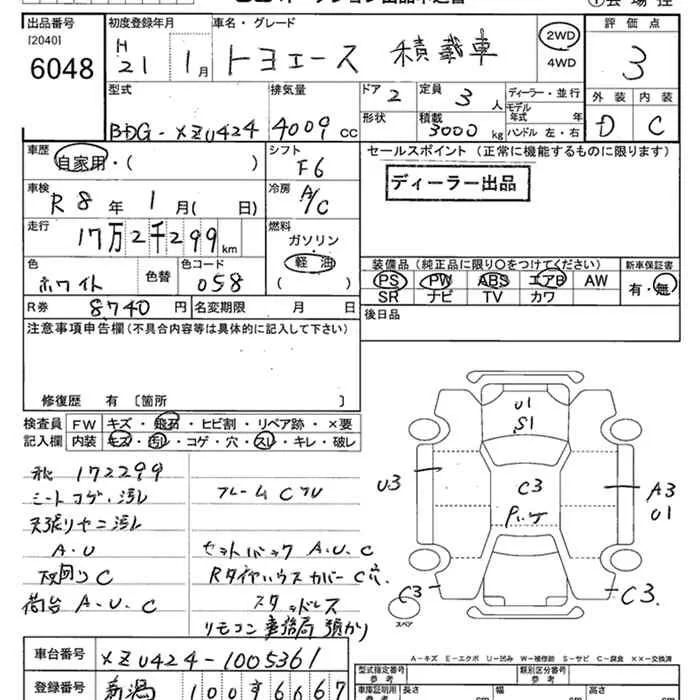 出品番号 初度登録年月 車名・グレード 評価点
[2040] H 2WD
6048 21 1月 トヨエース 積載車 4WD 3
型式 排気量 ドア 2 定員 3人 ディーラー・並行 外装 内装
モデル年式 年
BDG-XZU424 4009cc 形状 積載 3000kg ハンドル 左・右 D C
車歴 シフト セールスポイント (正常に機能するものに限ります)
自家用・( ) F6
ディーラー出品
車検 冷房
R8年 1月( 日) A/C
走行 燃料
17万2千299km ガソリン
軽油
色 色替 色コード ( ) 装備品 (純正品に限り○をつけてください) 新車保証書
ホワイト 058 PS PW ABS エアB AW 有・無
SR ナビ TV カワ
R券 8740円 名変期限 月 日 後日品
注意事項申告欄 (不具合内容等は具体的に記入して下さい)
修復歴 有 [箇所 ]
検査員 FW キズ・飛石・ヒビ割・リペア跡・×要
記入欄 内装 キズ・汚レ・コゲ・穴・スレ・キレ・破レ
172299
シートコゲ・汚レ フレームCアリ
天張りヤニ汚レ
A・U セットバック A.U.C
下回りC RタイヤハウスカバーC穴
荷台 A.U.C スタッドレス
リモコン事務局預かり
U1
S1
U3
C3
A3
U1
C3
C3.
スペア
車台番号 XZU424-1005361
登録番号 新潟 100 す 6667
A-キズ E-エクボ U-凹み W-補修跡 S-サビ C-腐食 ××-交換済
型式指定番号 類別区分番号
長さ 幅 高さ
cm cm cm